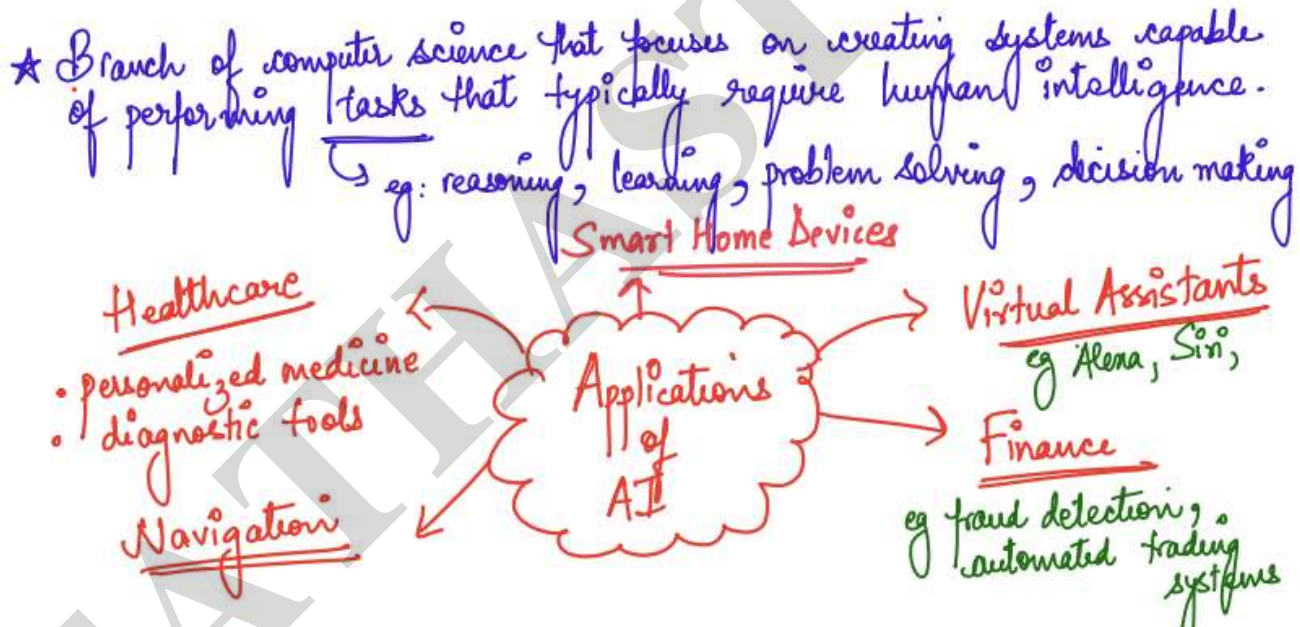 ★ Branch of computer science that focuses on creating systems capable
of performing tasks that typically require human intelligence.
eg: reasoning, learning, problem solving, decision making
Smart Home Devices
Healthcare
• personalized medicine
• diagnostic tools
Navigation
Applications
of
AI
Virtual Assistants
eg Alexa, Siri,
Finance
eg fraud detection,
automated trading
systems